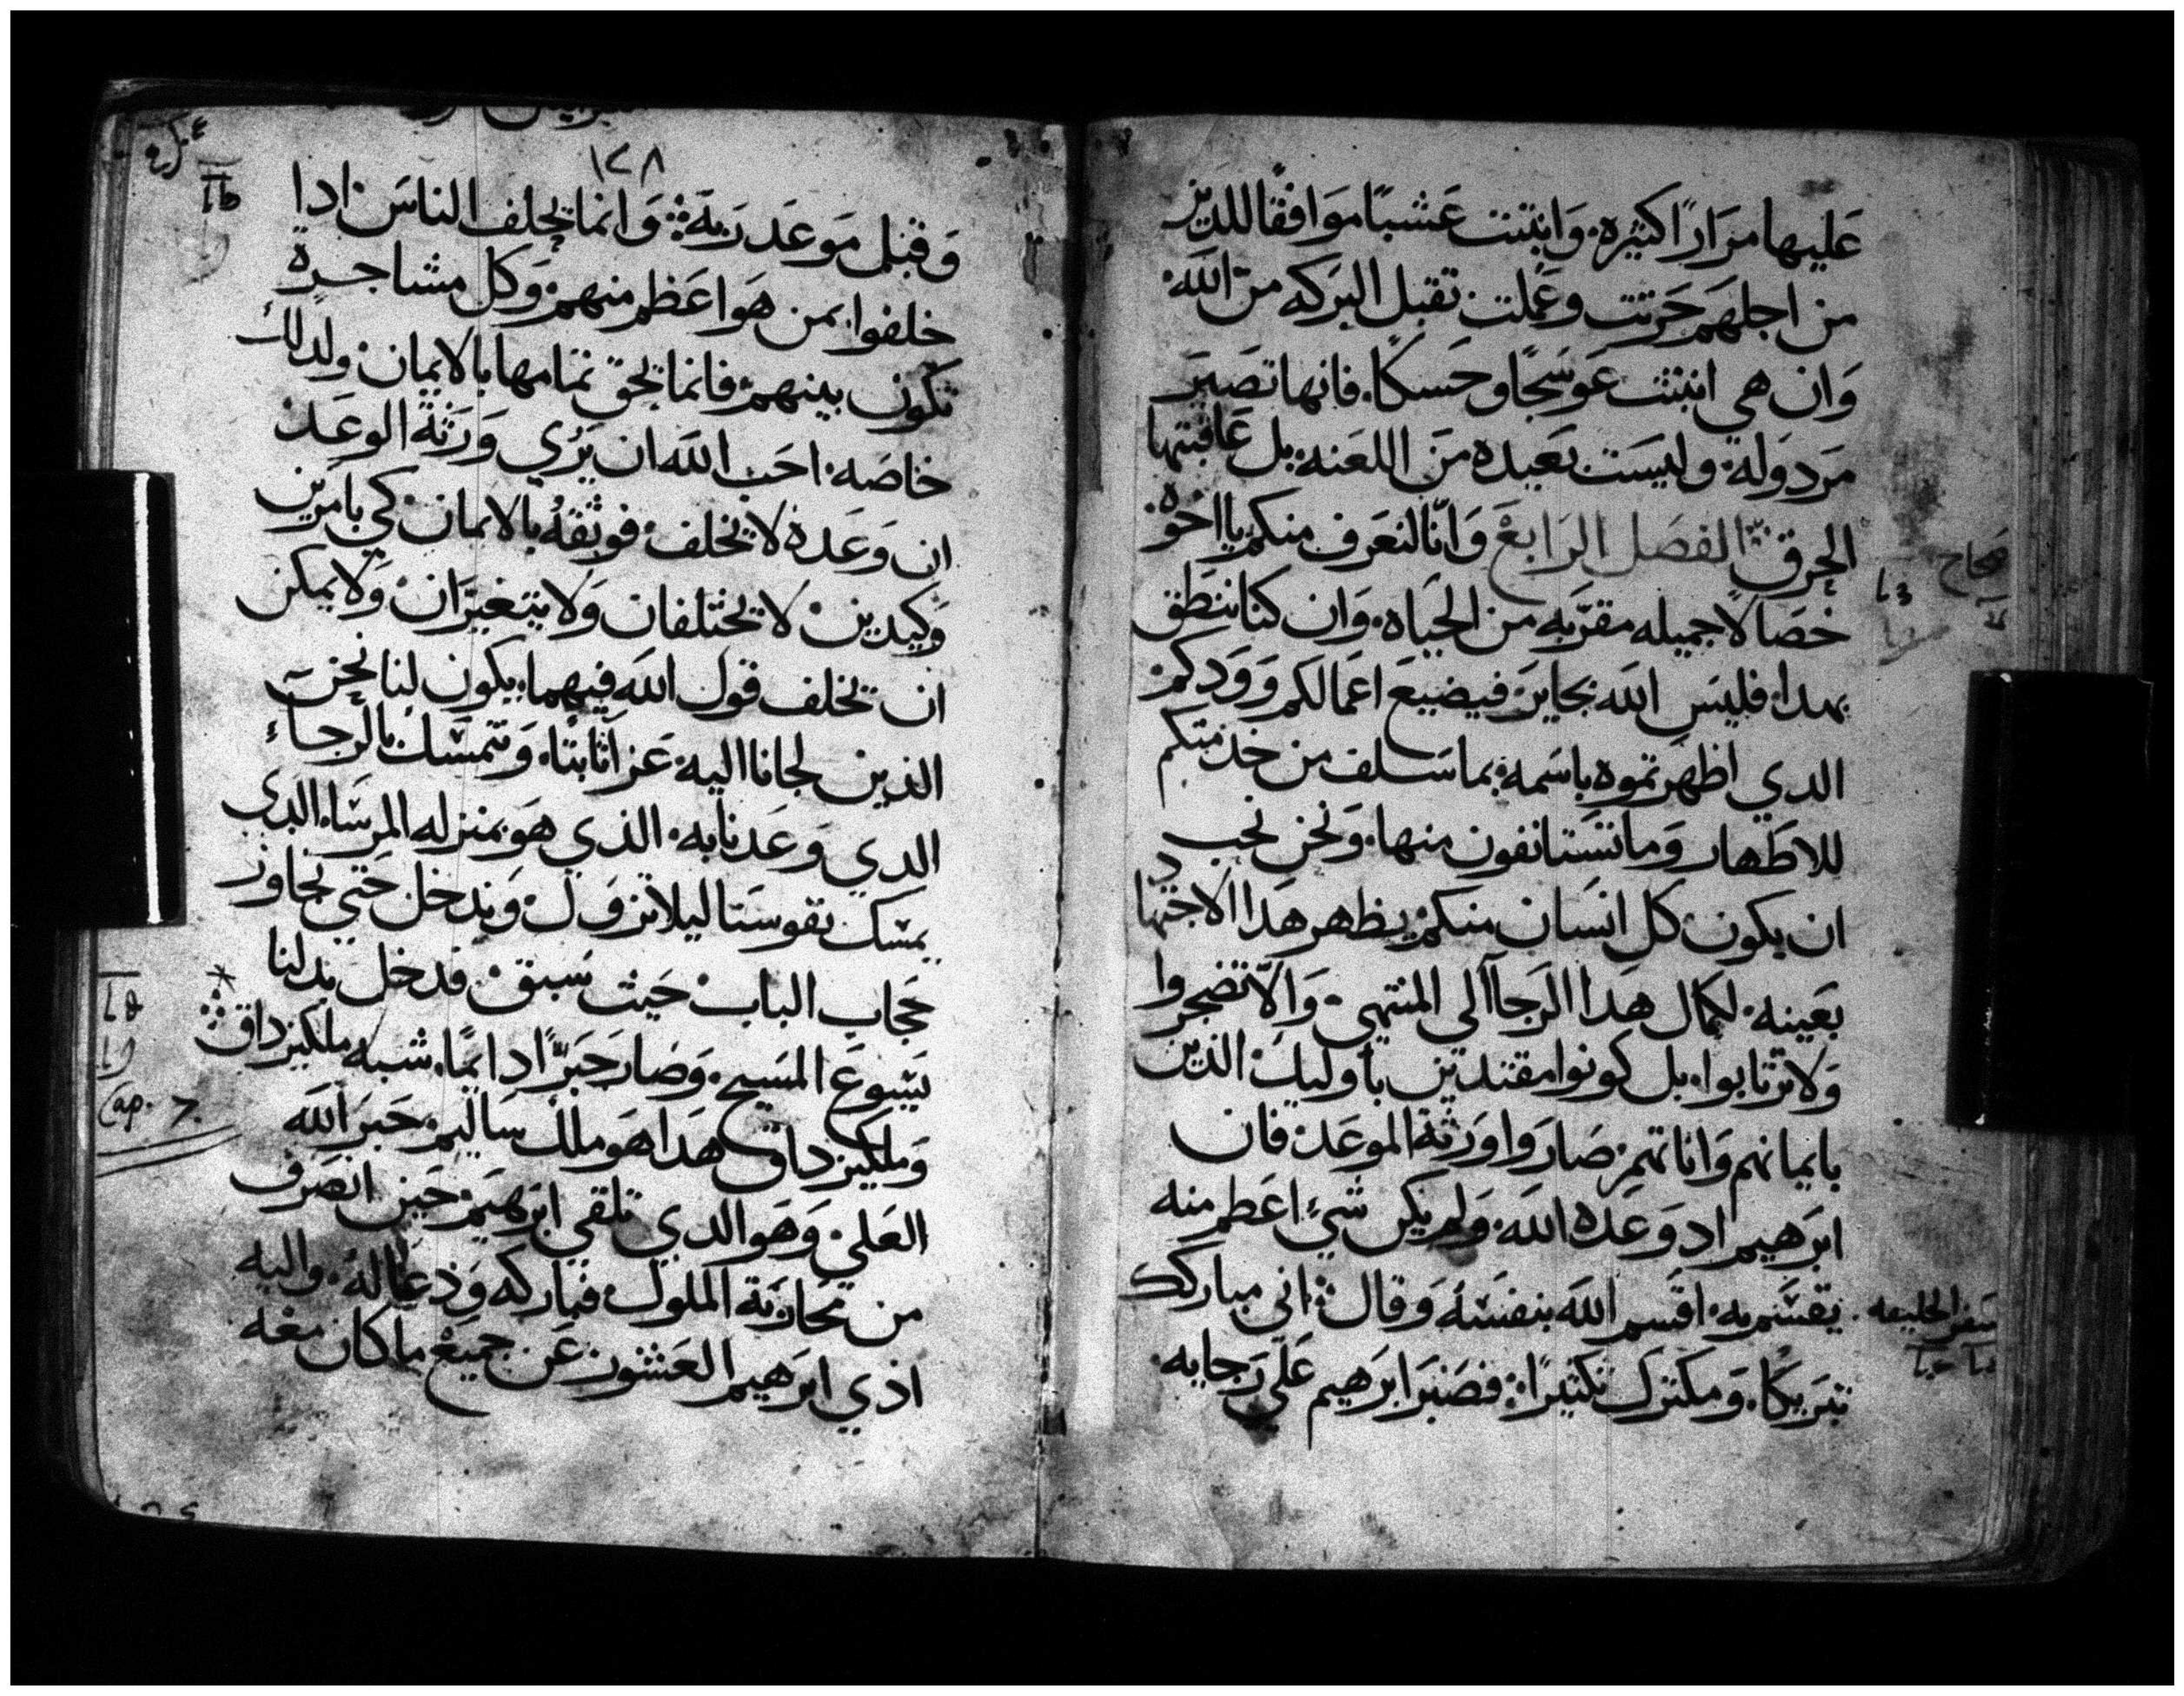 عليها مرارًا كثيره. وانبتت عشبًا موافقًا للدين
من اجلهم حرثت وعملت تقبل البركه من الله.
وان هي انبتت عوسجًا وحسكًا. فانها تصير
مردوله. وليست بعيده من اللعنه. بل عاقبتها
الحرق الفصل الرابع وانّا لنعرف منكم يا اخوه
خصالًا جميله مقرّبه من الحياه. وان كنا ننطق
بهدا. فليس الله بجاير فيضيع اعمالكم وودكم
الدي اظهرتموه باسمه. بما سلف من خدمتكم
للاطهار وما تستانفون منها. ونحن نحب
ان يكون كل انسان منكم يظهر هدا الاجتهاد
بعينه. لكمال هدا الرجا الى المنتهي. والا تضجروا
ولا ترتابوا. بل كونوا مقتديين باوليك الذين
بايمانهم واناتهم صاروا ورثة الموعد. فان
ابرهيم اد وعده الله. ولم يكن شيء اعظم منه
يقسم به. اقسم الله بنفسه وقال. اني مباركك
سفر الخليقه
تبريكًا. ومكترك تكتيرًا. فصبر ابرهيم على رجايه.
١٢٨
وقبل موعد ربه. وانما يحلف الناس ادا
حلفوا بمن هو اعظم منهم. وكل مشاجرة
تكون بينهم. فانما يحق تمامها بالايمان. ولدلك
خاصه. احب الله ان يري ورثة الوعد
ان وعده لا يخلف. فوثقه بالايمان. كي بامرين
وكيدين. لا يختلفان ولا يتغيران. ولا يمكن
ان تخلف قول الله فيهما. يكون لنا نحن
الذين لجانا اليه. عزا ثابتا. ونتمسك بالرجاء
الدي وعدنا به. الذي هو بمنزله المرساه الدي
يمسك نفوسنا ليلا تزول. وندخل حتي نجاوز
حجاب الباب. حيث سبق. فدخل بدلنا
يسوع المسيح. وصار حبرًا دايمًا. شبه ملكيزداق
Cap. 7.
وملكيزداق هدا هو ملك ساليم. حبر الله
العلي. وهو الدي تلقي ابرهيم. حين انصرف
من محاربة الملوك. فباركه ودعا له. واليه
ادي ابرهيم العشور. عن جميع ما كان معه